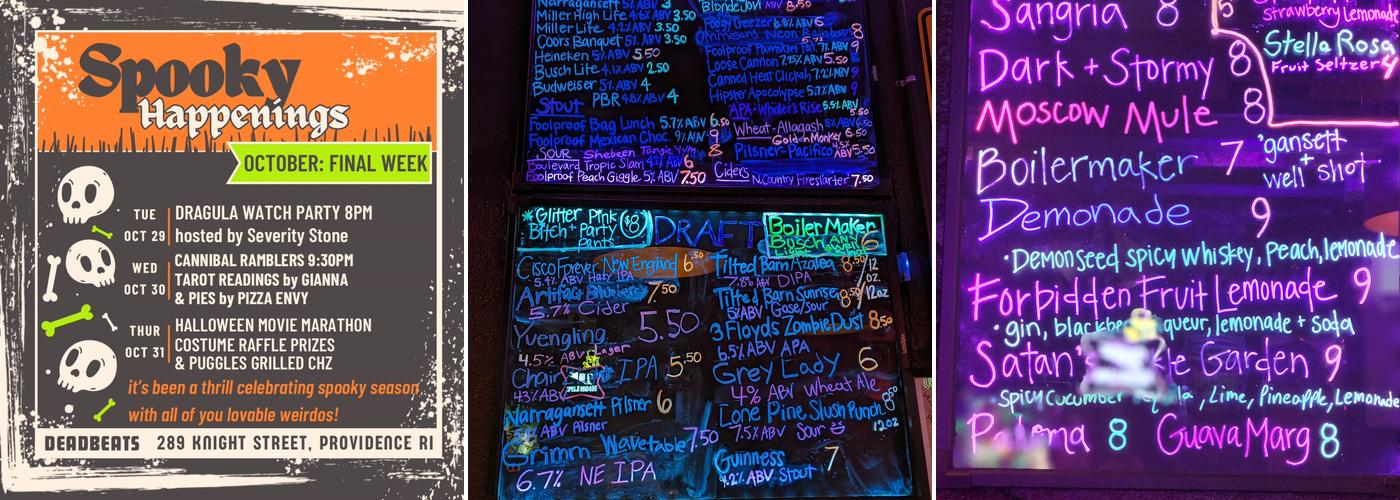 Spooky
Happenings
OCTOBER: FINAL WEEK
TUE
OCT 29
DRAGULA WATCH PARTY 8PM
hosted by Severity Stone
WED
OCT 30
CANNIBAL RAMBLERS 9:30PM
TAROT READINGS by GIANNA
& PIES by PIZZA ENVY
THUR
OCT 31
HALLOWEEN MOVIE MARATHON
COSTUME RAFFLE PRIZES
& PUGGLES GRILLED CHZ
it's been a thrill celebrating spooky season
with all of you lovable weirdos!
DEADBEATS 289 KNIGHT STREET, PROVIDENCE RI
Narragansett 5% ABV 3
Miller High Life 4.6% ABV 3.50
Miller Lite 4.2% ABV 3.50
Coors Banquet 5% ABV 3.50
Heineken 5% ABV 5.50
Busch Lite 4.1% ABV 2.50
Budweiser 5% ABV 4
PBR 4.8% ABV 4
Stout
Foolproof Bag Lunch 5.7% ABV 6.50
Foolproof Mexican Choc. 9% ABV 9
SOUR Shebeen 8
Boulevard Tropic Slam
Foolproof Peach Giggle 5% ABV 7.50
Blonde Jovi ABV 8.50
Foggy Geezer 6.8% ABV 6
Neon Rainbows 8
Foolproof 7% ABV 9
Loose Cannon 7.25% ABV 5.50
Canned Heat Clickah 7.2% ABV 9
Hipster Apocalypse 5.7% ABV 9
APA-Whaler's Rise 5.5% ABV 5.50
Wheat-Allagash
Golden Monkey 6.50
Pilsner-Pacifico ABV 5.50
Ciders
N. Country Firestarter 7.50
*Glitter Pink
Bitch + Party
Pants
$8
DRAFT
Boiler Maker
Busch 6
Cisco Forever New England 6.50
5.4% ABV Hazy IPA
Artifact Blueberry 7.50
5.7% Cider
Yuengling 5.50
4.5% ABV Lager
Chair IPA 5.50
Narragansett Pilsner 6
ABV Pilsner
Grimm Wavetable 7.50
6.7% NE IPA
Tilted Barn Azalea 8.50/12
oz.
7.8% ABV DIPA
Tilted Barn Sunrise 8.50/12oz
5% ABV Gose/Sour
3 Floyds Zombie Dust 8.50
6.5% ABV APA
Grey Lady 6
4% ABV Wheat Ale
Lone Pine Slush Punch 8.50
7.5% ABV Sour
12oz
Guinness 7
4.2% ABV Stout
Sangria 8
Dark + Stormy 8
Moscow Mule 8
Boilermaker 7
'gansett
+
well shot
Demonade 9
•Demonseed spicy whiskey, peach, lemonade
Forbidden Fruit Lemonade 9
•gin, lemonade + soda
Satan's Garden 9
Spicy Cucumber, Lime, Pineapple, Lemonade
Paloma 8 Guava Marg 8
strawberry lemonade
Stella Rosa
Fruit Seltzers